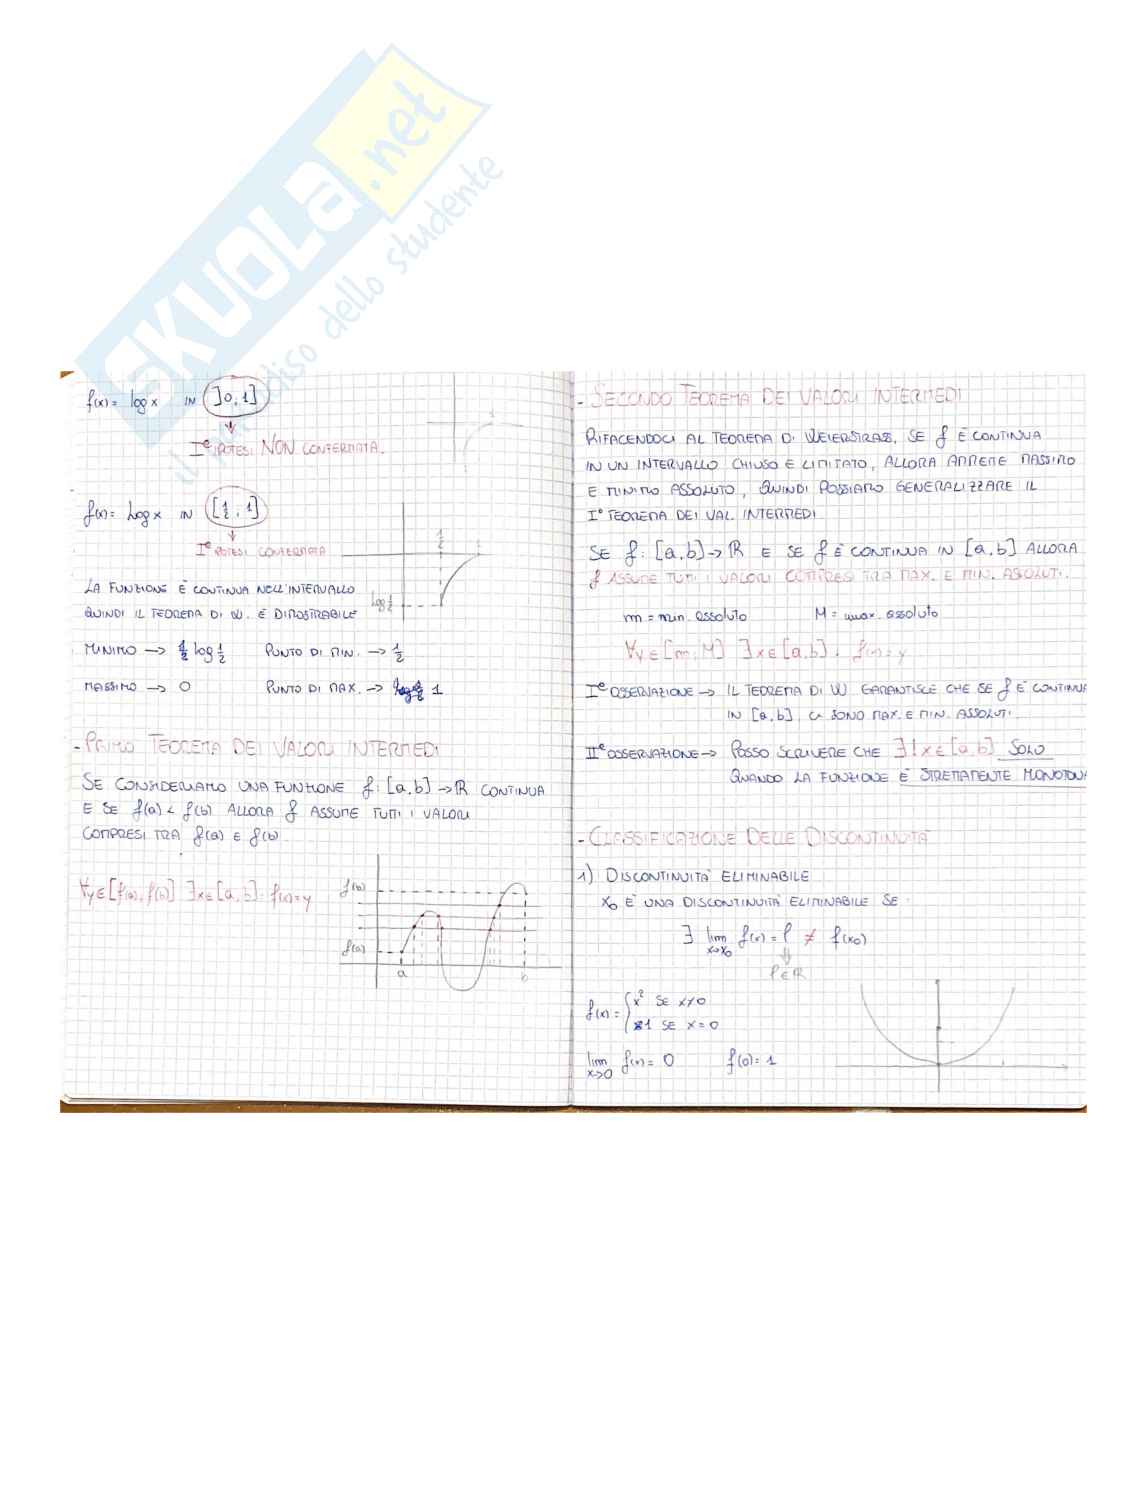 SKUOLA.net
il paradiso dello studente
f(x) = log x IN ]0,1]
Iª IPOTESI NON CONFERMATA.
f(x) = log x IN [1/2, 1]
Iª IPOTESI CONFERMATA
1/2 1
log 1/2
LA FUNZIONE È CONTINUA NELL'INTERVALLO
QUINDI IL TEOREMA DI W. È DIMOSTRABILE
MINIMO → log 1/2 PUNTO DI MIN. → 1/2
MASSIMO → 0 PUNTO DI MAX. → 1
- PRIMO TEOREMA DEI VALORI INTERMEDI
SE CONSIDERIAMO UNA FUNZIONE f: [a,b] → ℝ CONTINUA
E SE f(a) < f(b) ALLORA f ASSUME TUTTI I VALORI
COMPRESI TRA f(a) E f(b).
∀y ∈ [f(a), f(b)] ∃x ∈ [a,b] : f(x) = y
f(b)
f(a)
a b
- SECONDO TEOREMA DEI VALORI INTERMEDI
RIFACENDOCI AL TEOREMA DI WEIERSTRASS, SE f È CONTINUA
IN UN INTERVALLO CHIUSO E LIMITATO, ALLORA AMMETTE MASSIMO
E MINIMO ASSOLUTO, QUINDI POSSIAMO GENERALIZZARE IL
I° TEOREMA DEI VAL. INTERMEDI
SE f: [a,b] → ℝ E SE f È CONTINUA IN [a,b] ALLORA
f ASSUME TUTTI I VALORI COMPRESI TRA MAX. E MIN. ASSOLUTI.
m = min. assoluto M = max. assoluto
∀y ∈ [m, M] ∃x ∈ [a,b] : f(x) = y
Iª OSSERVAZIONE → IL TEOREMA DI W GARANTISCE CHE SE f È CONTINUA
IN [a,b] CI SONO MAX. E MIN. ASSOLUTI.
IIª OSSERVAZIONE → POSSO SCRIVERE CHE ∃!x ∈ [a,b] SOLO
QUANDO LA FUNZIONE È STRETTAMENTE MONOTONA
- CLASSIFICAZIONE DELLE DISCONTINUITÀ
1) DISCONTINUITÀ ELIMINABILE
x₀ È UNA DISCONTINUITÀ ELIMINABILE SE :
∃ lim x→x₀ f(x) = l ≠ f(x₀)
l ∈ ℝ
f(x) = { x² SE x ≠ 0
1 SE x = 0
lim x→0 f(x) = 0 f(0) = 1